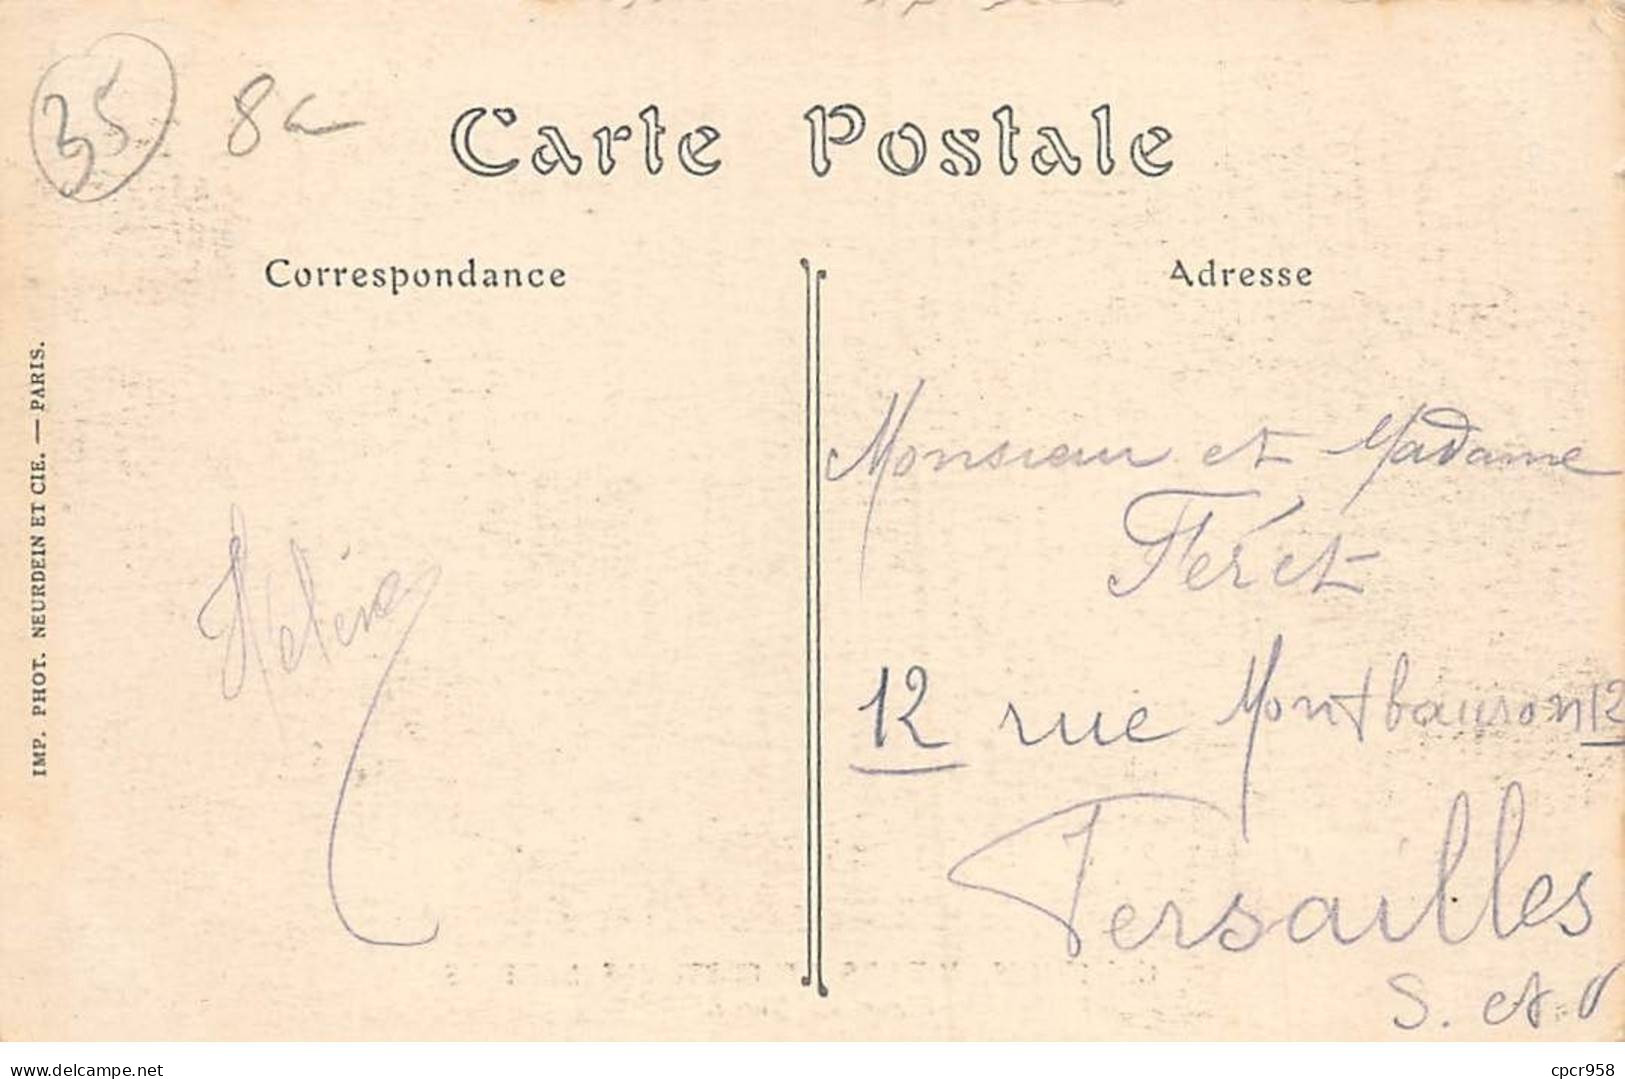 35 8
Carte Postale
Correspondance
Adresse
IMP. PHOT. NEURDEIN ET CIE. — PARIS.
Hélène
Monsieur et Madame
Féret
12 rue Montbauron 12
Versailles
S. et O
www.delcampe.net
cpcr958